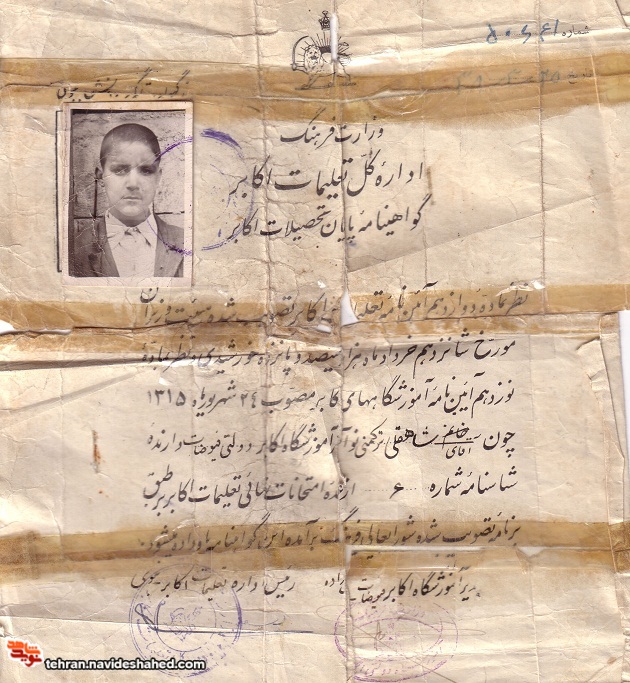 شماره
وزارت فرهنگ
ادارهٔ کل تعلیمات اکابر
گواهینامهٔ پایان تحصیلات اکابر
نظر بمادهٔ دوازدهم آئین نامهٔ تعلیمات اکابر تصویب شدهٔ هیئت وزیران
مورخ شانزدهم خرداد ماه هزار و سیصد و پانزده خورشیدی و نظر بمادهٔ
نوزدهم آئین نامهٔ آموزشگاههای اکابر مصوب ۲۴ شهریورماه ۱۳۱۵
چون خانم آقای شاهقلی ترکمنی نوآموز آموزشگاه اکابر دولتی فیوضات دارندهٔ
شناسنامهٔ شماره ۶ از عهدهٔ امتحانات نهائی تعلیمات اکابر بر طبق
برنامهٔ تصویب شده شورایعالی فرهنگ برآمده این گواهینامه باو داده میشود
مدیر آموزشگاه اکابر فیوضات رئیس اداره تعلیمات اکابر
نوید شاهد
tehran.navideshahed.com